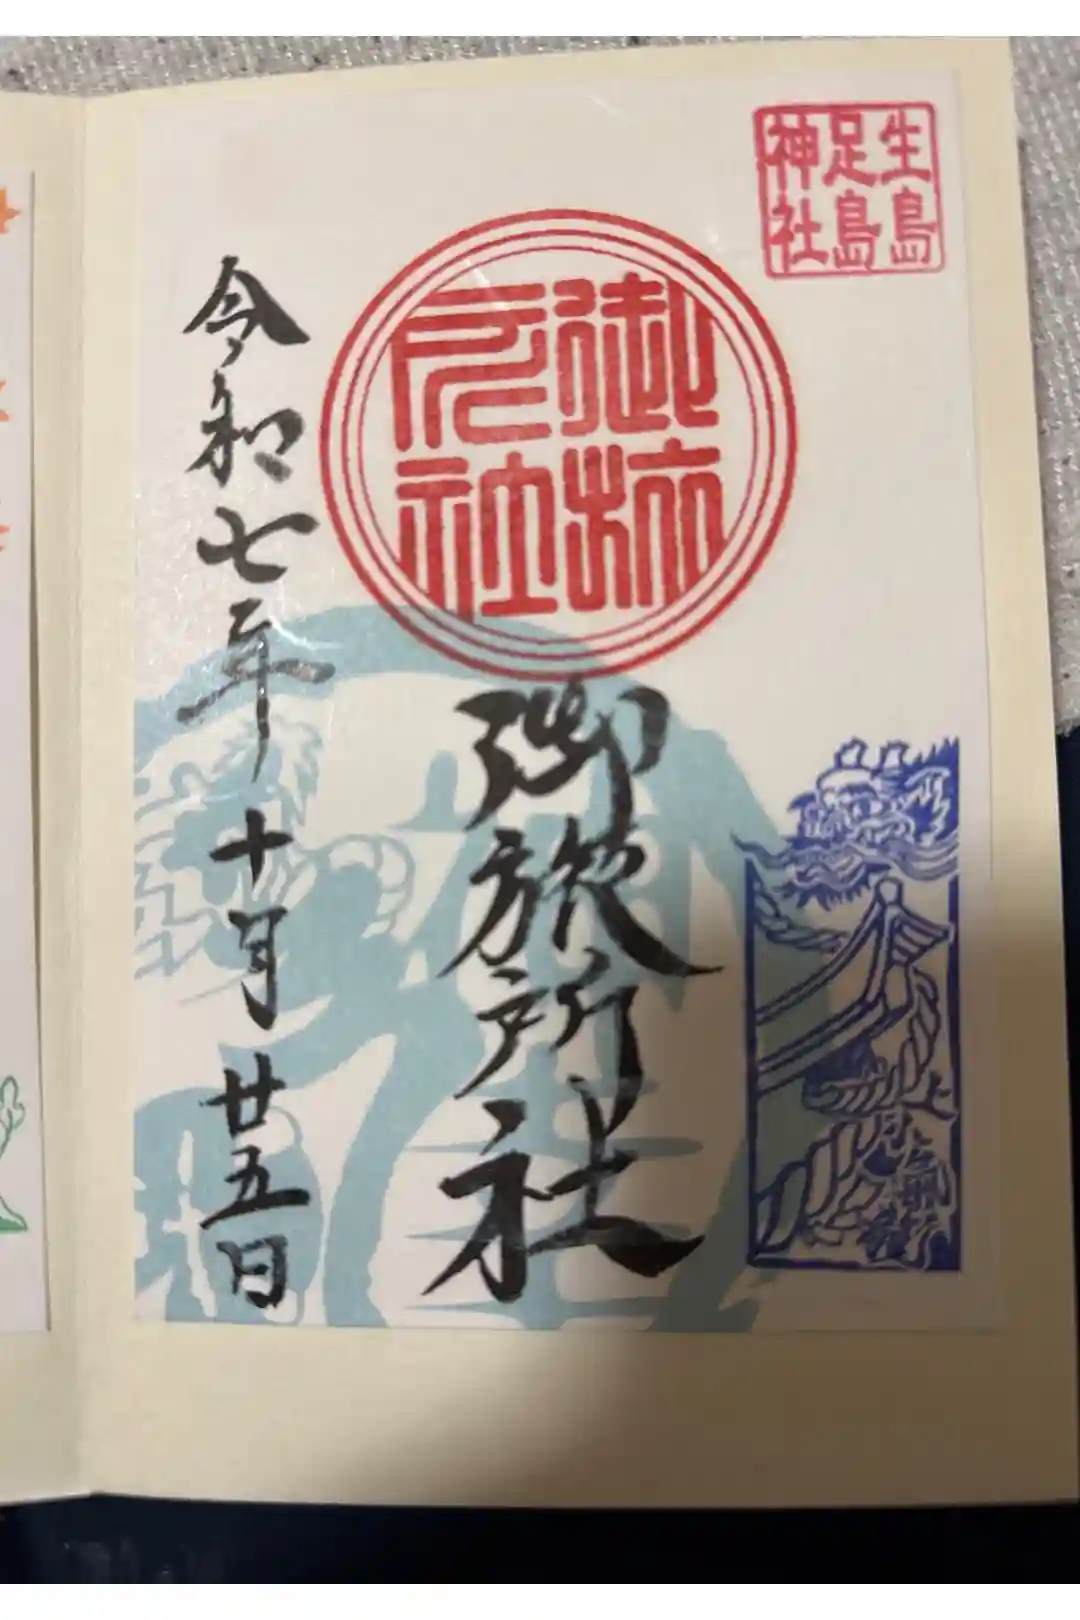 生島
足島
神社
御旅所社
御旅所社
令和七年十月廿五日